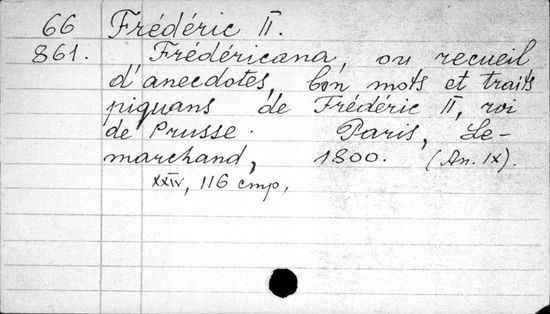 66 Frédéric II.
861. Frédéricana, ou recueil
d'anecdotes, bon mots et traits
piquans de Frédéric II, roi
de Prusse. Paris, Le-
marchand, 1800. (An. IX).
XXIV, 116 cmp.